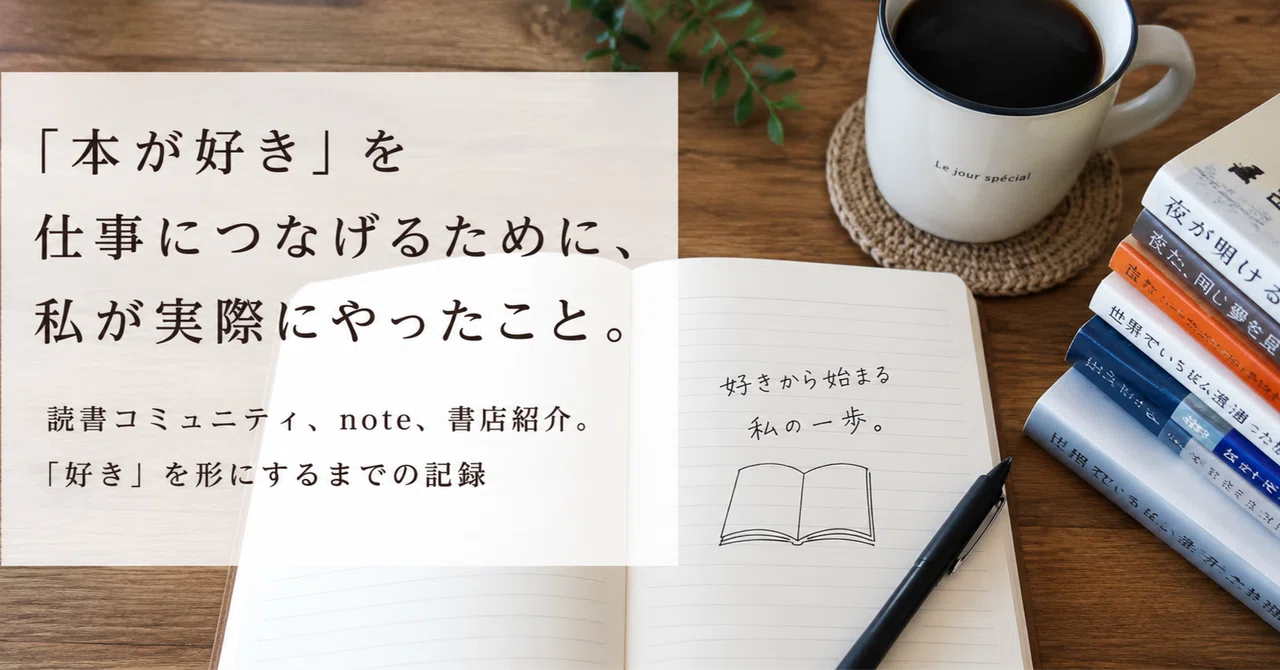 「本が好き」を
仕事につなげるために、
私が実際にやったこと。
読書コミュニティ、note、書店紹介。
「好き」を形にするまでの記録
好きから始まる
私の一歩。
Le jour spécial
夜が明ける